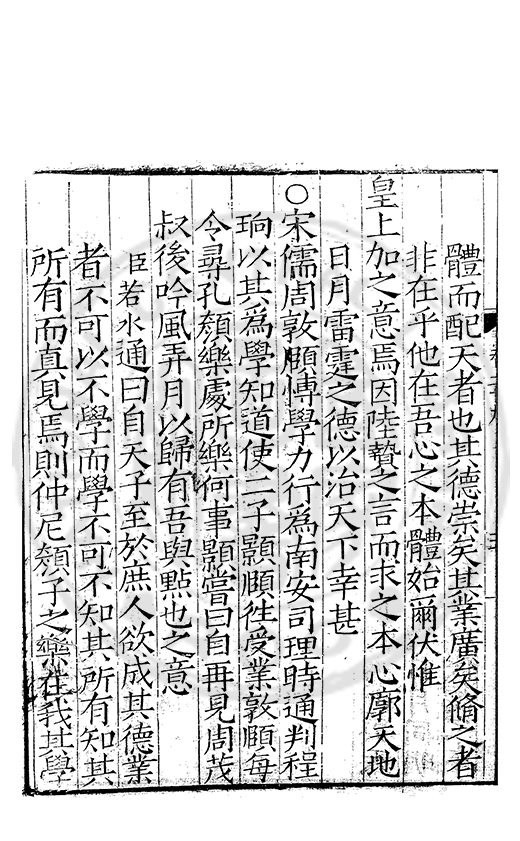 體而配天者也其德崇矣其業廣矣脩之者
非在乎他在吾心之本體始爾伏惟
皇上加之意焉因陸贄之言而求之本心廓天地
日月雷霆之德以治天下幸甚
○宋儒周敦頤博學力行爲南安司理時通判程
珦以其爲學知道使二子顥頤徃受業敦頤每
令尋孔顔樂處所樂何事顥嘗曰自再見周茂
叔後吟風弄月以歸有吾與點也之意
臣若水通曰自天子至於庶人欲成其德業
者不可以不學而學不可不知其所有知其
所有而真見焉則仲尼顔子之樂在我其學